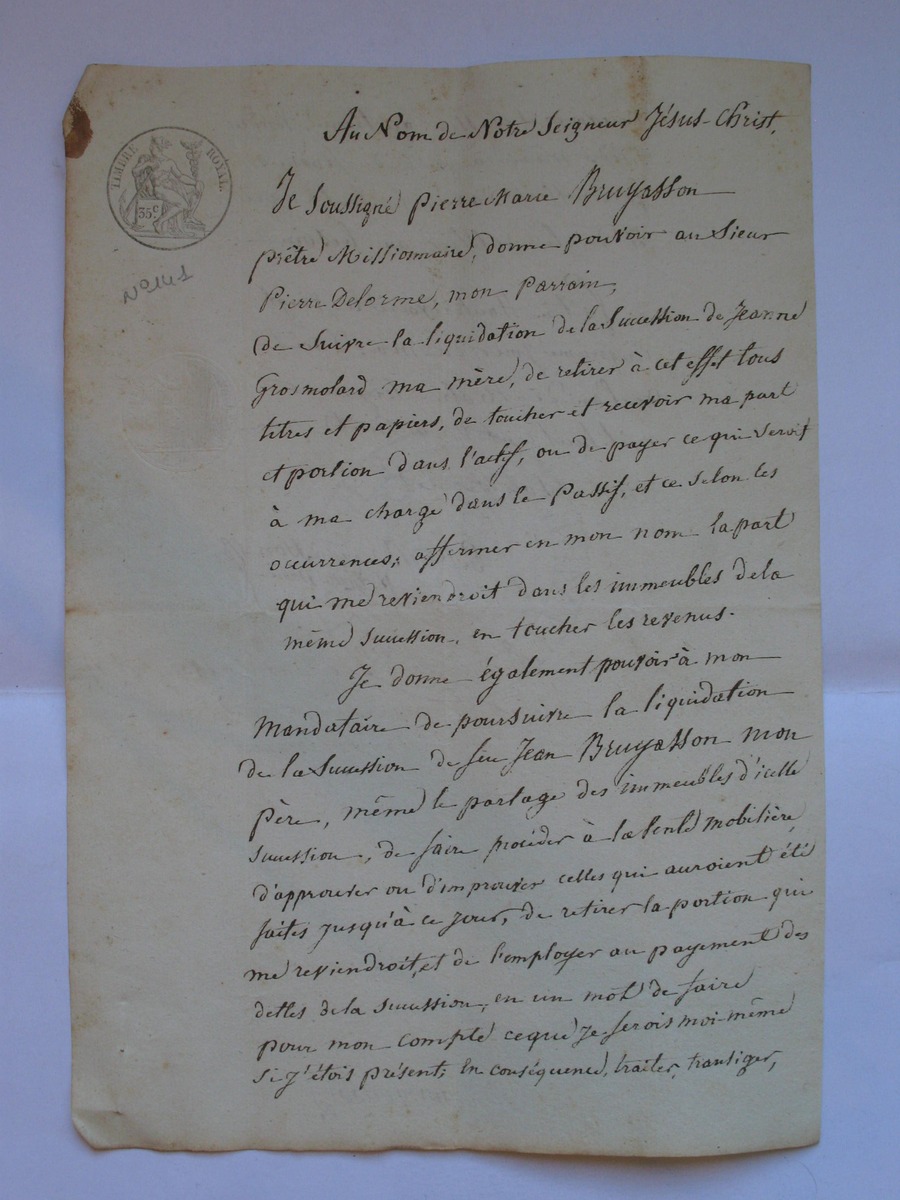 TIMBRE ROYAL
35C
N°141
Au Nom de Notre Seigneur Jésus-Christ,
Je soussigné Pierre Marie Bruyasson
prêtre Missionnaire, donne pouvoir au Sieur
Pierre Delorme, mon Parrain,
de suivre la liquidation de la Succession de Jeanne
Grosmolard ma mère, de retirer à cet effet tous
titres et papiers, de toucher et recevoir ma part
et portion dans l'actif, ou de payer ce qui seroit
à ma charge dans le Passif, et ce selon les
occurrences; affermer en mon nom la part
qui me reviendroit dans les immeubles de la
même succession, en toucher les revenus.
Je donne également pouvoir à mon
Mandataire de poursuivre la liquidation
de la Succession de feu Jean Bruyasson mon
Père, même le partage des immeubles d'icelle
succession, de faire procéder à la vente mobilière,
d'approuver ou d'improuver celles qui auroient été
faites jusqu'à ce jour, de retirer la portion qui
me reviendroit, et de l'employer au payement des
dettes de la succession, en un mot de faire
pour mon compte ce que je ferois moi-même
si j'étois présent; en conséquence, traiter, transiger,